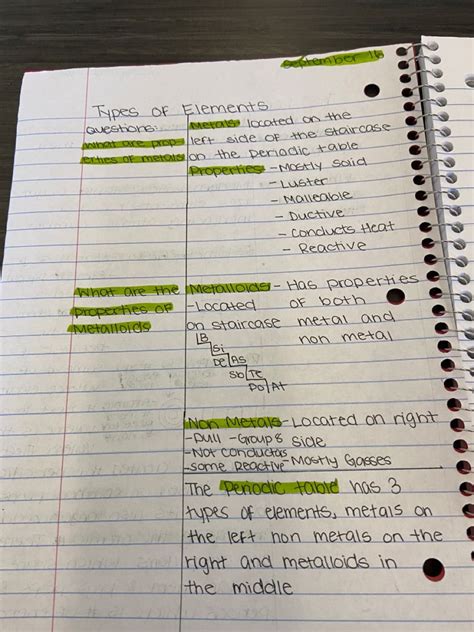 September 16
Types of Elements
Questions:
What are prop
erties of metals
Metals located on the
left side of the staircase
on the periodic table
Properties - Mostly Soild
- Luster
- Malleable
- Ductive
- Conducts Heat
- Reactive
What are the
Properties of
Metalloids
Metalloids - Has properties
of both
metal and
non metal
- Located
on staircase
B
Si
Ge As
Sb Te
Po At
Non Metals - Located on right
side
- Dull - Group 8
- Not conductas
- some Reactive Mostly Gasses
The Periodic table has 3
types of elements, metals on
the left non metals on the
right and metalloids in
the middle